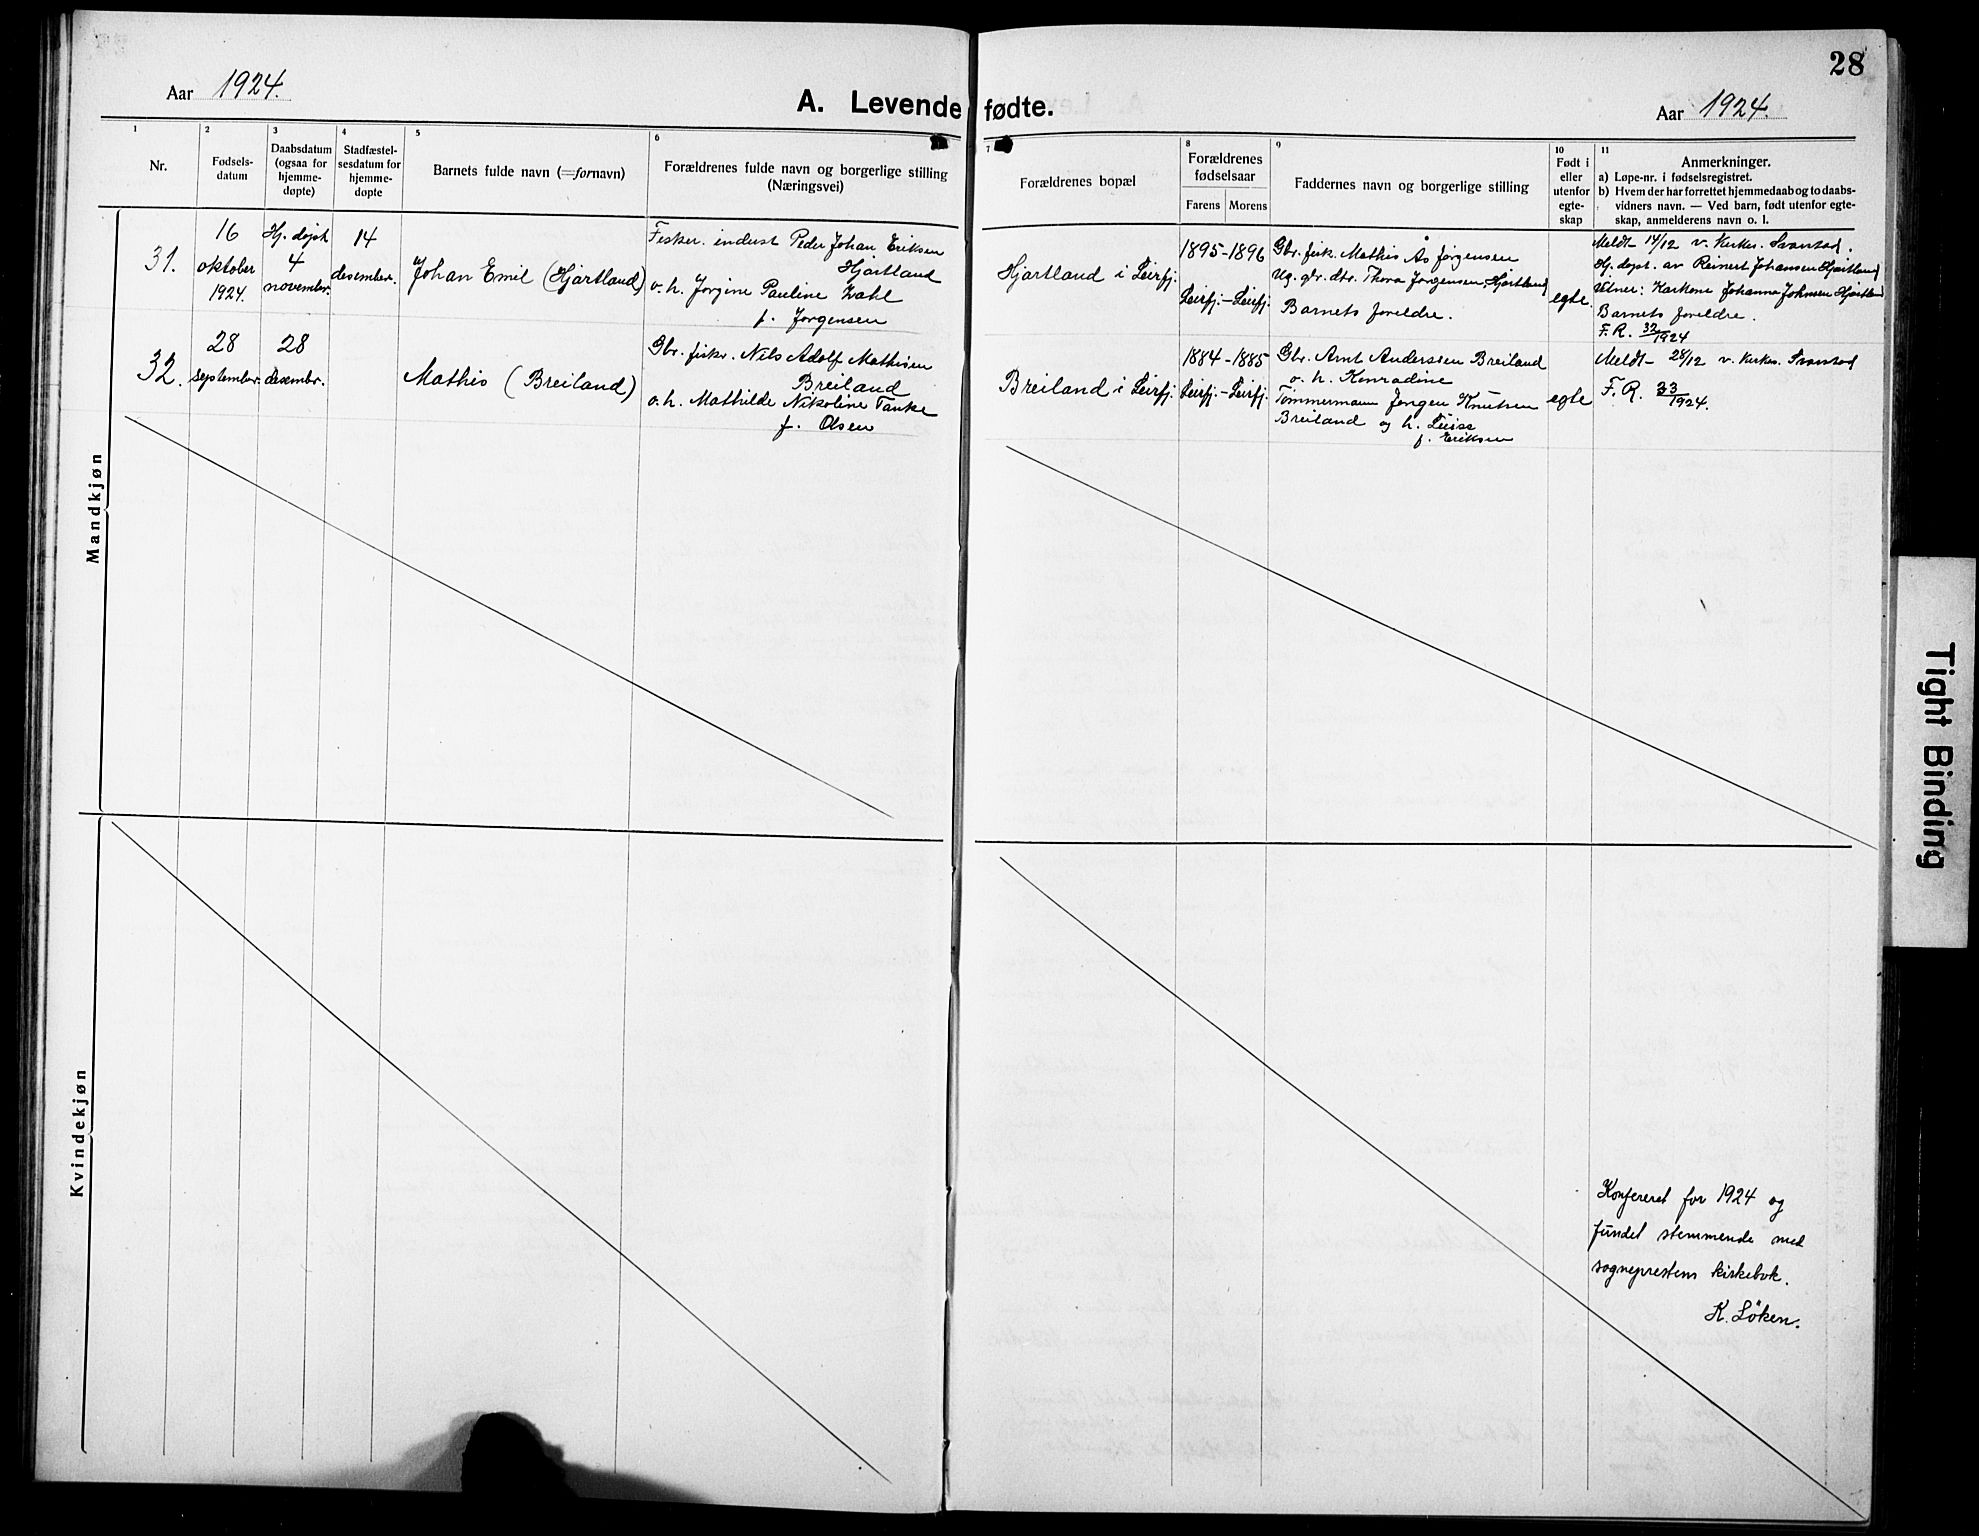 28
Aar 1924.
A. Levende fødte.
Aar 1924.
1
Nr.
2
Fødsels-
datum
3
Daabsdatum
(ogsaa for
hjemme-
døpte)
4
Stadfæstel-
sesdatum for
hjemme-
døpte
5
Barnets fulde navn (=fornavn)
6
Forældrenes fulde navn og borgerlige stilling
(Næringsvei)
7
Forældrenes bopæl
8
Forældrenes
fødselsaar
Farens Morens
9
Faddernes navn og borgerlige stilling
10
Født i
eller
utenfor
egte-
skap
11
Anmerkninger.
a) Løpe-nr. i fødselsregistret.
b) Hvem der har forrettet hjemmedaab og to daabs-
vidners navn. — Ved barn, født utenfor egte-
skap, anmelderens navn o. l.
Mandkjøn
31.
16
oktober
1924.
Hj. døpt
4
november.
14
desember.
Johan Emil (Hjartland)
Fisker. inderst Peder Johan Eriksen
Hjartland
o. h. Jorgine Pauline Zahl
f. Jørgensen
Hjartland i Leirfj.
1895-1896
Leirfj.-Leirfj.
Gbr. fisk. Mathis Ås Jørgensen
Ug. gbr. dtr. Thora Jørgensen, Hjartland
Barnets foreldre.
egte
Meldt 14/12 v. kirkes.
Hj. døpt. av Reinert Johansen Hjartland
Vitner: Johanna Johnsen Hjartland
Barnets foreldre.
F. R. 32/1924
32.
28
september.
28
desembr.
Mathis (Breiland)
Gbr. fiskr. Nils Adolf Mathisen
Breiland
o. h. Mathilde Nikoline Tanke
f. Olsen
Breiland i Leirfj.
1884-1885
Leirfj.-Leirfj.
Gbr. Arnt Anderssen Breiland
o. h. Konradine
Tømmermann Jørgen Knutsen
Breiland og h. Luise
f. Eriksen
egte
Meldt 28/12 v. kirkes.
F. R. 33/1924.
Kvindekjøn
Konferert for 1924 og
fundet stemmende med
sogneprestens kirkebok.
K. Löken.
Tight Binding